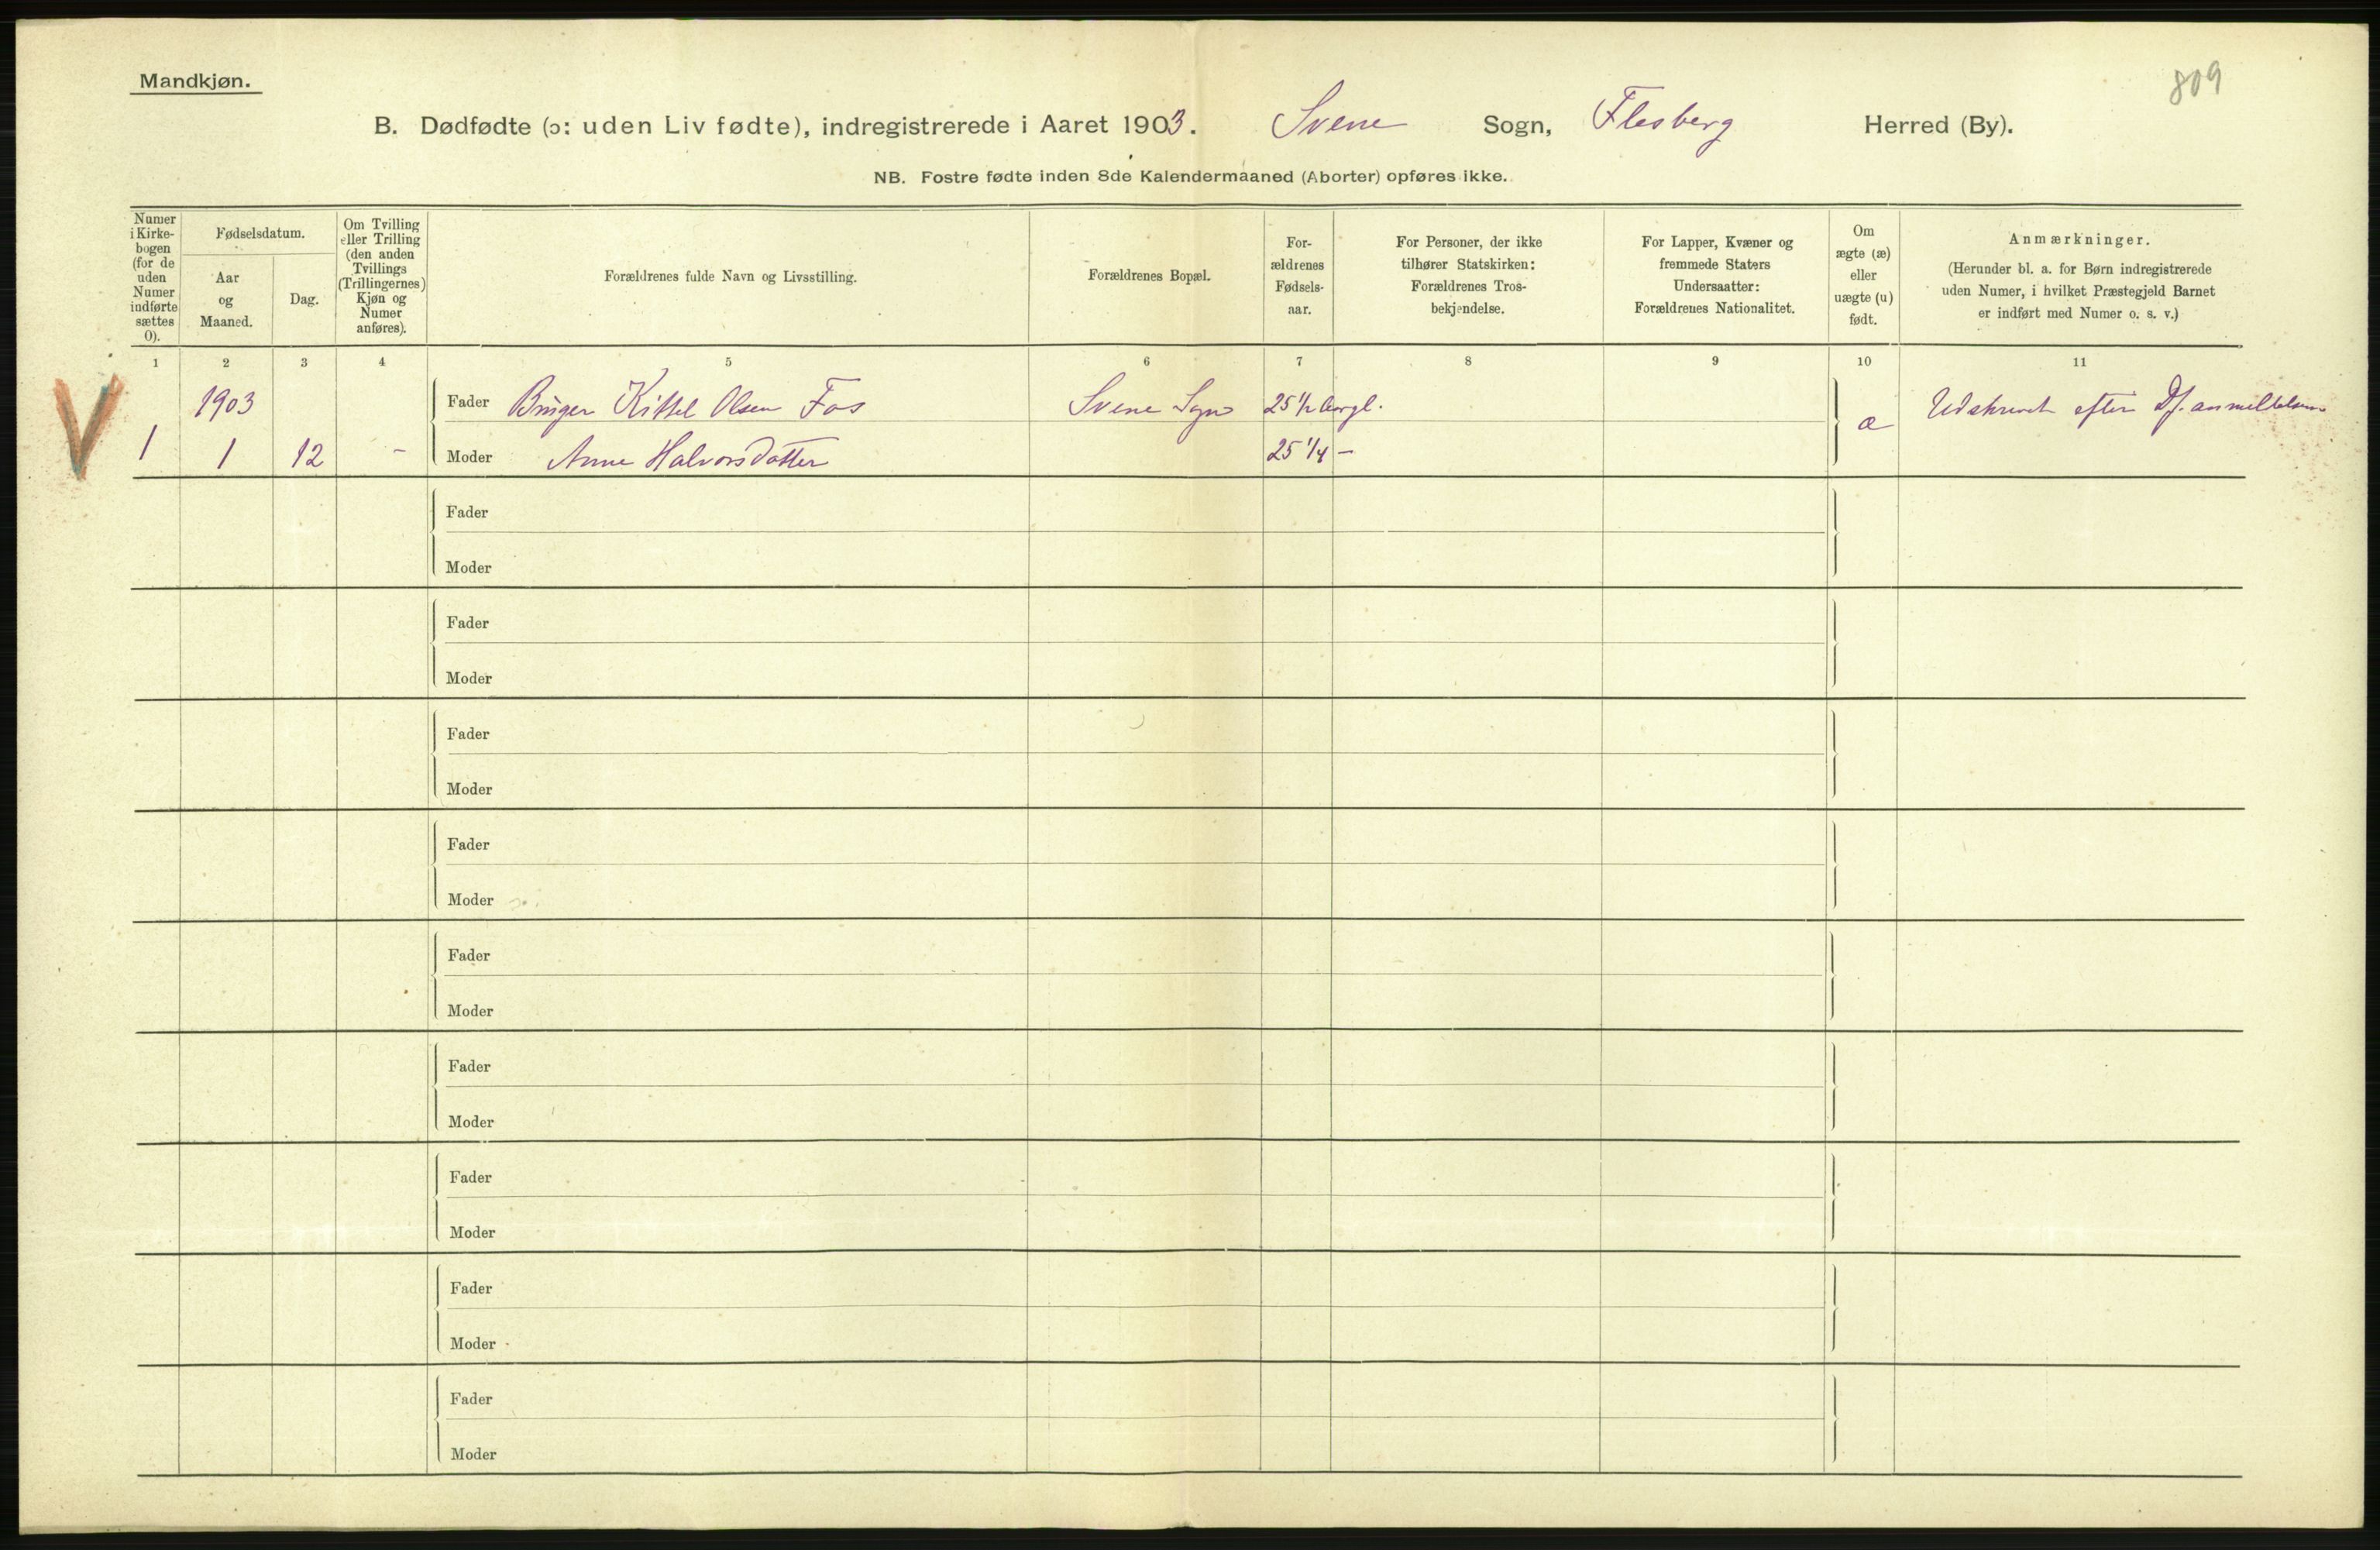 Mandkjøn.
809
B. Dødfødte (ɔ: uden Liv fødte), indregistrerede i Aaret 1903. Svene Sogn, Flesberg Herred (By).
NB. Fostre fødte inden 8de Kalendermaaned (Aborter) opføres ikke.
Numer
i Kirke-
bogen
(for de
uden
Numer
indførte
sættes
0).
Fødselsdatum.
Aar
og
Maaned.
Dag.
Om Tvilling
eller Trilling
(den anden
Tvillings
(Trillingernes)
Kjøn og
Numer
anføres).
Forældrenes fulde Navn og Livsstilling.
Forældrenes Bopæl.
For-
ældrenes
Fødsels-
aar.
For Personer, der ikke
tilhører Statskirken:
Forældrenes Tros-
bekjendelse.
For Lapper, Kvæner og
fremmede Staters
Undersaatter:
Forældrenes Nationalitet.
Om
ægte (æ)
eller
uægte (u)
født.
Anmærkninger.
(Herunder bl. a. for Børn indregistrerede
uden Numer, i hvilket Præstegjeld Barnet
er indført med Numer o. s. v.)
1 2 3 4 5 6 7 8 9 10 11
1903 Fader Bruger Kittel Olsen Fos Svene Sogn 25 1/2 æ Udskrevet efter Df. anmeldelsen
1 1 12 - Moder Anne Halvorsdatter 25 1/4 -
Fader
Moder
Fader
Moder
Fader
Moder
Fader
Moder
Fader
Moder
Fader
Moder
Fader
Moder
Fader
Moder
Fader
Moder